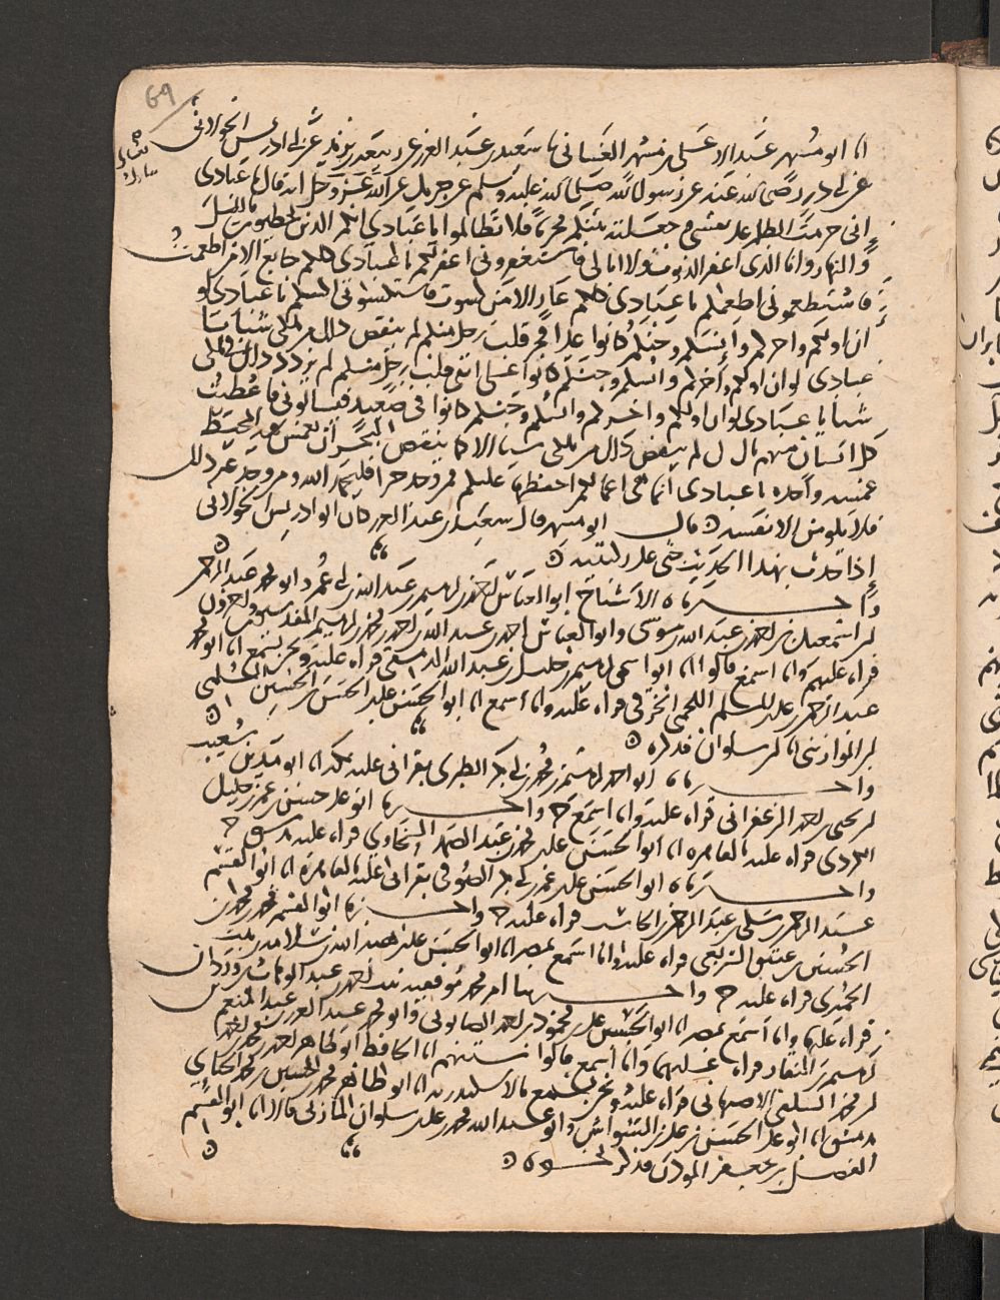 69
انا ابو مسهر عبد الاعلى بن مسهر الغساني نا سعيد بن عبد العزيز عن ربيعه بن يزيد عن ابي ادريس الخولاني
عن ابي ذر رضي الله عنه عن رسول الله صلى الله عليه وسلم عن جبريل عن الله عز وجل انه قال يا عبادي
اني حرمت الظلم على نفسي وجعلته بينكم محرما فلا تظالموا يا عبادي انكم الذين تخطئون بالليل
والنهار وانا الذي اغفر الذنوب ولا ابالي فاستغفروني اغفر لكم يا عبادي كلكم جايع الا من اطعمت
فاستطعموني اطعمكم يا عبادي كلكم عار الا من كسوت فاستكسوني اكسكم يا عبادي لو
ان اولكم واخركم وانسكم وجنكم كانوا على افجر قلب رجل منكم لم ينقص ذلك من ملكي شيا يا
عبادي لو ان اولكم واخركم وانسكم وجنكم كانوا على اتقى قلب رجل منكم لم يزد ذلك في ملكي
شيا يا عبادي لو ان اولكم واخركم وانسكم وجنكم كانوا في صعيد فسالوني فاعطيت
كل انسان منهم ما سال لم ينقص ذلك من ملكي شيا الا كما ينقص البحر ان يغمس فيه المخيط
غمسه واحده يا عبادي انما هي اعمالكم احفظها عليكم فمن وجد خيرا فليحمد الله ومن وجد غير ذلك
فلا يلومن الا نفسه قال ابو مسهر قال سعيد بن عبد العزيز كان ابو ادريس الخولاني
اذا حدث بهذا الحديث جثى على ركبتيه
واخبرناه الاشياخ ابو العباس احمد بن ابرهيم بن عبد الله بن ابي عمر وابو محمد عبد الرحمن
بن اسمعيل بن احمد بن عبد الله بن موسى وابو العباس احمد بن عبد الله بن احمد بن محمد بن ابرهيم المقدسيون
قراه عليهم وانا اسمع قالوا انا ابو اسحق ابرهيم بن خليل بن عبد الله الدمشقي قراه عليه ونحن نسمع انا ابو محمد
عبد الرحمن بن علي بن المسلم اللخمي الخرقي قراه عليه وانا اسمع انا ابو الحسن علي بن الحسن بن الحسين السلمي
بن الموازيني انا بن سلوان فذكره
واخبرناه ابو احمد ابرهيم بن محمد بن ابي بكر الطبري بقراتي عليه بمكه انا ابو مدين شعيب
بن يحيى بن احمد الزعفراني قراه عليه وانا اسمع ح واخبرنا ابو علي حسن بن عمر بن خليل
الكردي قراه عليه بالقاهره انا ابو الحسن علي بن محمد بن عبد الصمد السخاوي قراه عليه
واخبرناه ابو الحسن علي بن عمر بن ابي بكر الصوفي بقراتي عليه بالقاهره انا ابو القسم
عبد الرحمن بن مكي بن عبد الرحمن الكاتب قراه عليه ح واخبرنا ابو القسم محمد بن محمد بن
الحسين بن عتيق الربعي قراه عليه وانا اسمع بمصر انا ابو الحسن علي بن هبه الله بن سلامه بن بنت
الحميري قراه عليه ح واخبرتنا ام محمد موفقيه بنت احمد بن عبد الوهاب بن وردان
قراه عليها وانا اسمع بمصر انا ابو الحسن علي بن محمود بن احمد الصابوني وابو محمد عبد العزيز بن عبد المنعم
بن ابرهيم بن النقار قراه عليهما وانا اسمع قالوا ستتهم انا الحافظ ابو طاهر احمد بن محمد بن احمد
بن محمد السلفي الاصبهاني قراه عليه ونحن نسمع بالاسكندريه انا ابو طاهر محمد بن الحسين بن محمد الحنائي
بدمشق انا ابو علي الحسن بن علي بن الشواش وابو عبد الله محمد بن علي بن سلوان المازني قالا انا ابو القسم
الفضل بن جعفر المؤذن فذكر نحوه